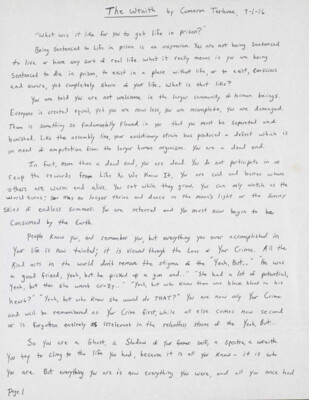 The Wraith by Cameron Terhune, 7-1-16
"What was it like for you to get life in prison?"
Being sentenced to life in prison is an oxymoron. You are not being sentenced
to live or have any sort of real life. What it really means is you are being
sentenced to die in prison, to exist in a place without life, or to exist, conscious
and aware, yet completely shorn of your life. What is that like?
You are told you are not welcome in the larger community of human beings.
Everyone is created equal, yet you are now less, you are incomplete, you are damaged.
There is something so fundamentally flawed in you that you must be separated and
banished. Like the assembly line, your evolutionary strain has produced a defect which is
in need of amputation from the larger human organism. You are a dead end.
In fact, more than a dead end, you are dead. You do not participate in or
reap the rewards from Life As We Know It. You are cold and broken where
others are warm and alive. You rot while they grow. You can only watch as the
world turns; you may no longer thrive and dance in the moon's light or the sunny
skies of endless summers. You are interred and you must now begin to be
consumed by the Earth.
People know you, and remember you, but everything you ever accomplished in
your life is now tainted; it is viewed through the lens of Your Crime. All the
kind acts in the world don't remove the stigma of the "Yeah, But..." "He was
a good friend, yeah, but he picked up a gun and.." "She had a lot of potential,
yeah, but then she went crazy.." "Yeah, but who knew there was black blood in his
heart?" "Yeah, but who knew she would do THAT?" You are now only Your Crime
and will be remembered as Your Crime first, while all else comes now second
or is forgotten entirely as irrelevant in the relentless storm of the Yeah, But...
So you are a Ghost, a Shadow of your former self, a spectre, a wraith
You try to cling to the life you had, because it is all you know - it is who
you are. But everything you are is now everything you were, and all you once had
Page 1